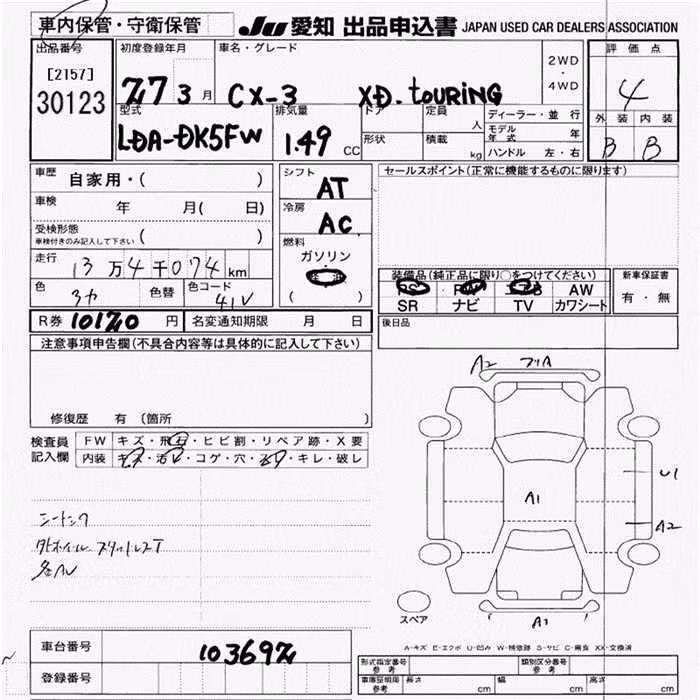 車内保管・守衛保管
JU 愛知 出品申込書 JAPAN USED CAR DEALERS ASSOCIATION
出品番号
[2157]
30123
初度登録年月
27 3 月
車名・グレード
CX-3 XD. touRING
2WD
・
4WD
評価点
4
外装 内装
B B
型式
LDA-DK5FW
排気量
1.49 CC
ドア
形状
定員
人
積載
kg
ディーラー・並 行
モデル年式 年
ハンドル 左・右
車歴 自家用・( )
車検 年 月( 日)
受検形態
車検付きのみ記入して下さい ( )
走行 13万4千074 km
色 色替 色コード 41V
シフト
AT
冷房
AC
燃料
ガソリン
軽油
( )
セールスポイント(正常に機能するものに限ります)
装備品(純正品に限り○をつけてください)
PS PW AB AW
SR ナビ TV カワシート
新車保証書
有・無
後日品
R券 10120 円 名変通知期限 月 日
注意事項申告欄(不具合内容等は具体的に記入して下さい)
修復歴 有 (箇所 )
検査員
記入欄
FW キズ・飛石・ヒビ割・リペア跡・X要
内装 キズ・汚レ・コゲ・穴・スレ・キレ・破レ
A2
A1
U1
A2
A3
スペア
A-キズ E-エクボ U-凹み W-補修跡 S-サビ C-腐食 XX-交換済
車台番号 103692
登録番号
型式指定番号
参考
類別区分番号
参考
車庫証明用
参考
長さ cm 幅 cm 高さ cm